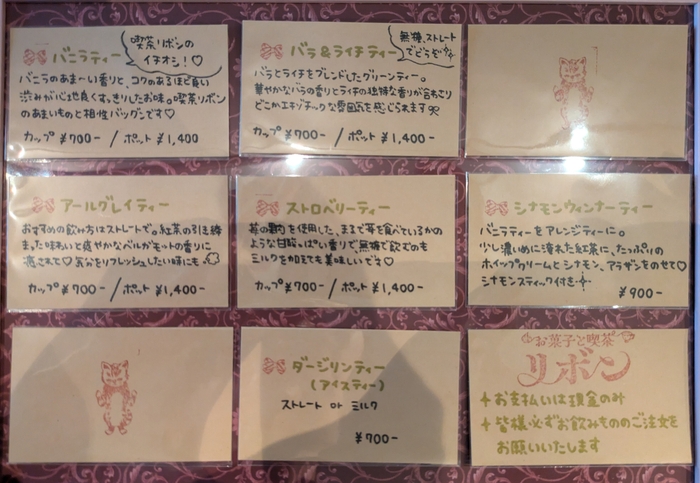 バニラティー
喫茶リボンの
イチオシ!♡
バニラのあま〜い香りと、コクのあるほど良い
渋みが心地良くすっきりしたお味。喫茶リボン
のあまいものと相性バツグンです♡
カップ ¥700- / ポット ¥1,400
バラ&ライチティー
無糖、ストレート
でどうぞ
バラとライチをブレンドしたグリーンティー。
華やかなバラの香りとライチの独特な香りが合わさり
どこかエキゾチックな雰囲気を感じられます
カップ ¥700- / ポット ¥1,400-
アールグレイティー
おすすめの飲み方はストレートで。紅茶の引き締
まった味わいと爽やかなベルガモットの香りに
癒されて♡気分をリフレッシュしたい時にも
カップ ¥700- / ポット ¥1,400-
ストロベリーティー
苺の を使用した、ままで苺を食べているかの
ような甘酸っぱい香りで、無糖で飲むのも
ミルクを加えても美味しいです♡
カップ ¥700- / ポット ¥1,400-
シナモンウィンナーティー
バニラティーをアレンジティーに。
少し濃いめに淹れた紅茶に、たっぷりの
ホイップクリームとシナモン、アラザンをのせて♡
シナモンスティック付き
¥900-
ダージリンティー
(アイスティー)
ストレート or ミルク
¥700-
お菓子と喫茶
リボン
+お支払いは現金のみ
+皆様、必ずお飲みもののご注文を
お願いいたします